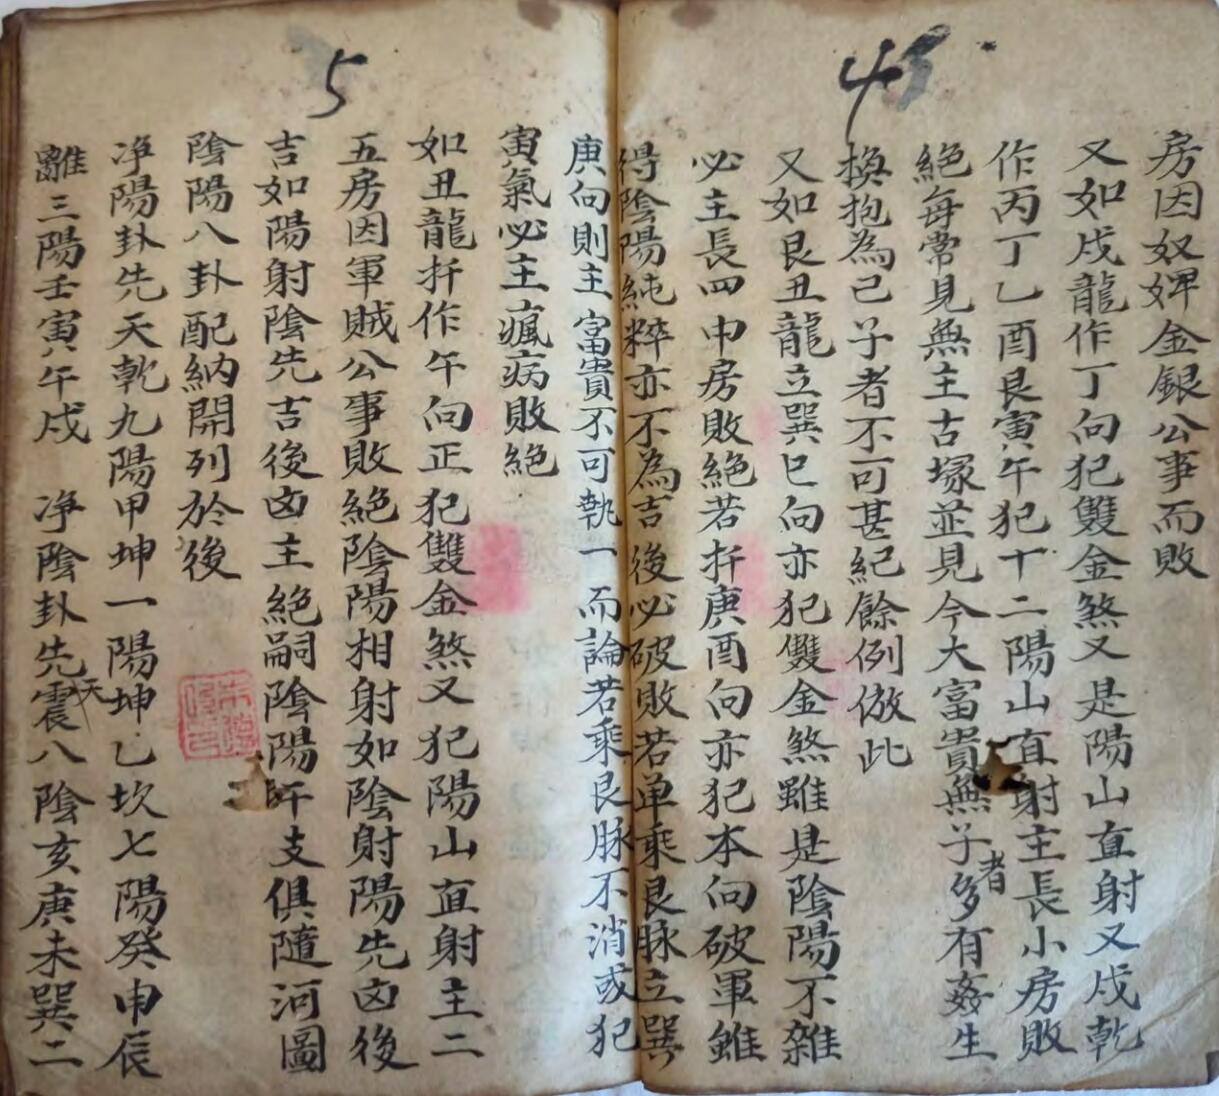 4
房因奴婢金銀公事而敗
又如戌龍作丁向犯雙金煞又是陽山直射又戌乾
作丙丁乙酉艮寅午犯十二陽山直射主長小房敗
絕每常見無主古塚並見今大富貴無子者多有姦生
換抱為己子者不可甚紀餘例倣此
又如艮丑龍立巽巳向亦犯雙金煞雖是陰陽不雜
必主長四中房敗絕若扦庚酉向亦犯本向破軍雖
得陰陽純粹亦不為吉後必破敗若单乘艮脉立巽
5
庚向則主富貴不可執一而論若乘艮脉不消或犯
寅氣必主瘋病敗絕
如丑龍扦作午向正犯雙金煞又犯陽山直射主二
五房因軍賊公事敗絕陰陽相射如陰射陽先凶後
吉如陽射陰先吉後凶主絕嗣陰陽干支俱隨河圖
陰陽八卦配納開列於後
净陽卦先天乾九陽甲坤一陽坤乙坎七陽癸申辰
離三陽壬寅午戌 净陰卦先天震八陰亥庚未巽二